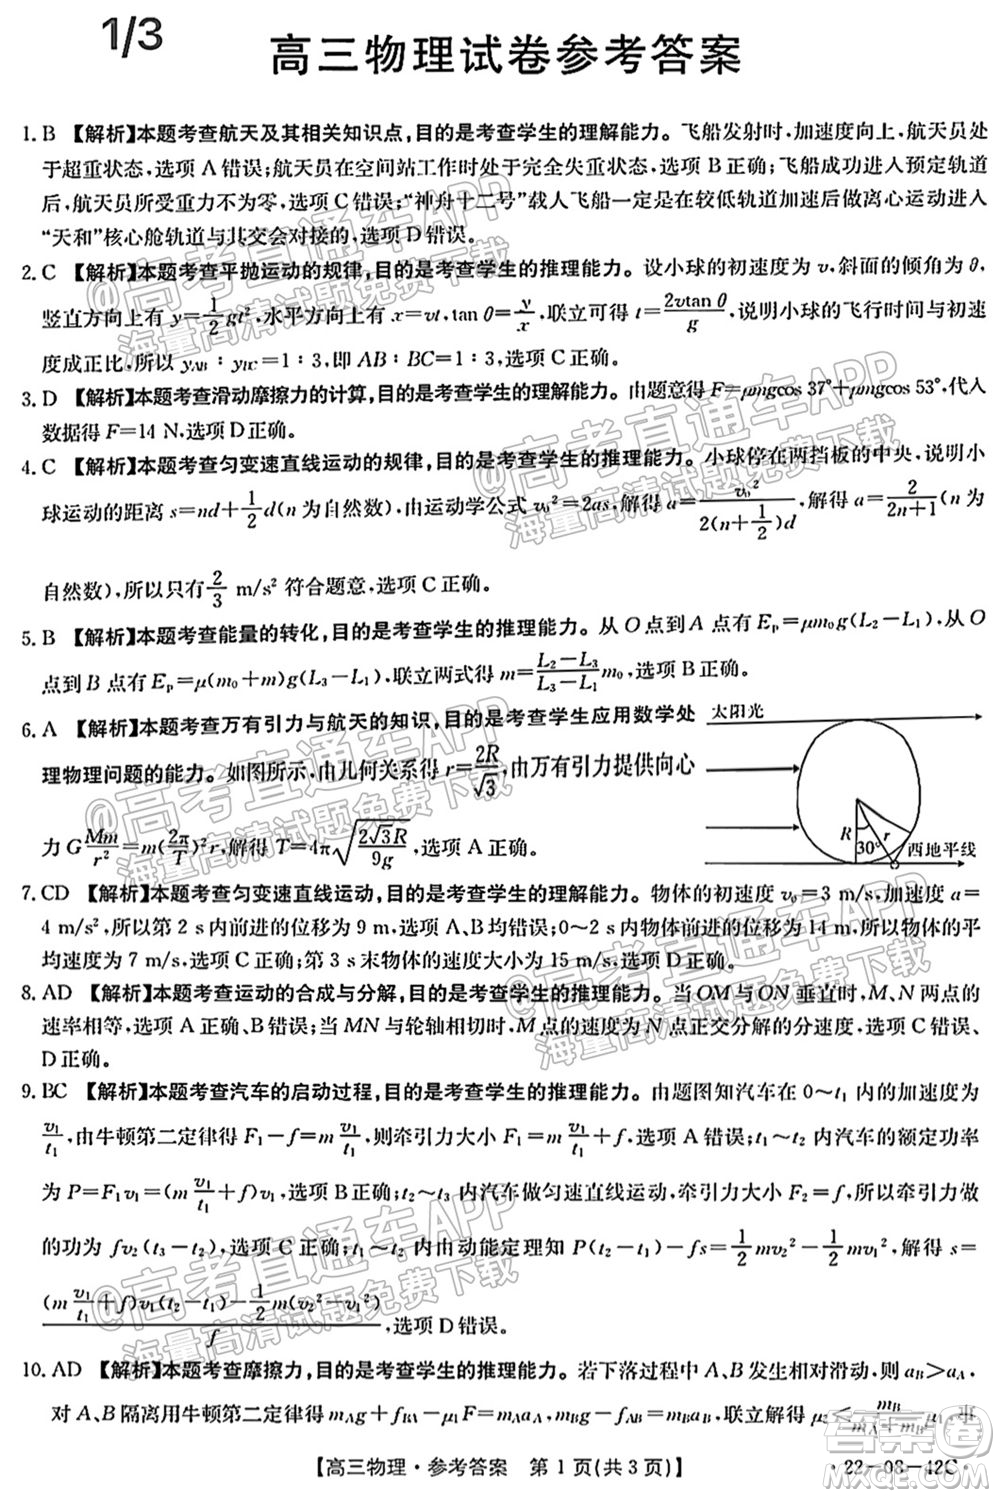 1/3
高三物理试卷参考答案
1. B 【解析】本题考查航天及其相关知识点,目的是考查学生的理解能力。飞船发射时,加速度向上,航天员处
于超重状态,选项 A 错误;航天员在空间站工作时处于完全失重状态,选项 B 正确;飞船成功进入预定轨道
后,航天员所受重力不为零,选项 C 错误;“神舟十二号”载人飞船一定是在较低轨道加速后做离心运动进入
“天和”核心舱轨道与其交会对接的,选项 D 错误。
2. C 【解析】本题考查平抛运动的规律,目的是考查学生的推理能力。设小球的初速度为 v,斜面的倾角为 θ,
竖直方向上有 y=1/2gt²,水平方向上有 x=vt,tan θ=y/x,联立可得 t=2vtan θ/g,说明小球的飞行时间与初速
度成正比,所以 yAB:yBC=1:3,即 AB:BC=1:3,选项 C 正确。
3. D 【解析】本题考查滑动摩擦力的计算,目的是考查学生的理解能力。由题意得 F=μmgcos 37°+μmgcos 53°,代入
数据得 F=14 N,选项 D 正确。
4. C 【解析】本题考查匀变速直线运动的规律,目的是考查学生的推理能力。小球停在两挡板的中央,说明小
球运动的距离 s=nd+1/2d(n 为自然数),由运动学公式 v₀²=2as,解得 a=v₀²/(2(n+1/2)d),解得 a=2/(2n+1)(n 为
自然数),所以只有 2/3 m/s² 符合题意,选项 C 正确。
5. B 【解析】本题考查能量的转化,目的是考查学生的推理能力。从 O 点到 A 点有 Ep=μm₀g(L₂−L₁),从 O
点到 B 点有 Ep=μ(m₀+m)g(L₃−L₁),联立两式得 m=(L₂−L₃)/(L₃−L₁)m₀,选项 B 正确。
6. A 【解析】本题考查万有引力与航天的知识,目的是考查学生应用数学处
理物理问题的能力。如图所示,由几何关系得 r=2R/√3,由万有引力提供向心
力 GMm/r²=m(2π/T)²r,解得 T=4π√(2√3R/9g),选项 A 正确。
太阳光
R
r
30°
西地平线
7. CD 【解析】本题考查匀变速直线运动,目的是考查学生的理解能力。物体的初速度 v₀=3 m/s,加速度 a=
4 m/s²,所以第 2 s 内前进的位移为 9 m,选项 A、B 均错误;0~2 s 内物体前进的位移为 14 m,物体的平
均速度为 7 m/s,选项 C 正确;第 3 s 末物体的速度大小为 15 m/s,选项 D 正确。
8. AD 【解析】本题考查运动的合成与分解,目的是考查学生的推理能力。当 OM 与 ON 垂直时,M、N 两点的
速率相等,选项 A 正确、B 错误;当 MN 与轮轴相切时,M 点的速度为 N 点正交分解的分速度,选项 C 错误、
D 正确。
9. BC 【解析】本题考查汽车的启动过程,目的是考查学生的推理能力。由题图知汽车在 0~t₁ 内的加速度为
v₁/t₁,由牛顿第二定律得 F₁−f=m v₁/t₁,则牵引力大小 F₁=m v₁/t₁+f,选项 A 错误;t₁~t₂ 内汽车的额定功率
为 P=F₁v₁=(m v₁/t₁+f)v₁,选项 B 正确;t₂~t₃ 内汽车做匀速直线运动,牵引力大小 F₂=f,所以牵引力做
的功为 fv₂(t₃−t₂),选项 C 正确;t₁~t₂ 内由动能定理知 P(t₂−t₁)−fs=1/2mv₂²−1/2mv₁²,解得 s=
((m v₁/t₁+f)v₁(t₂−t₁)−1/2m(v₂²−v₁²))/f,选项 D 错误。
10. AD 【解析】本题考查摩擦力,目的是考查学生的推理能力。若下落过程中 A、B 发生相对滑动,则 aB>aA,
对 A、B 隔离用牛顿第二定律得 mAg+fBA−μ₁F=mAaA,mBg−fAB=mBaB,联立解得 μ₂≤mB/(mA+mB)μ₁,
【高三物理·参考答案 第 1 页(共 3 页)】
·22-08-42C·
@高考直通车APP
海量高清试题免费下载
@高考直通车APP
海量高清试题免费下载
@高考直通车APP
海量高清试题免费下载
@高考直通车APP
海量高清试题免费下载
@高考直通车APP
海量高清试题免费下载
答案圈